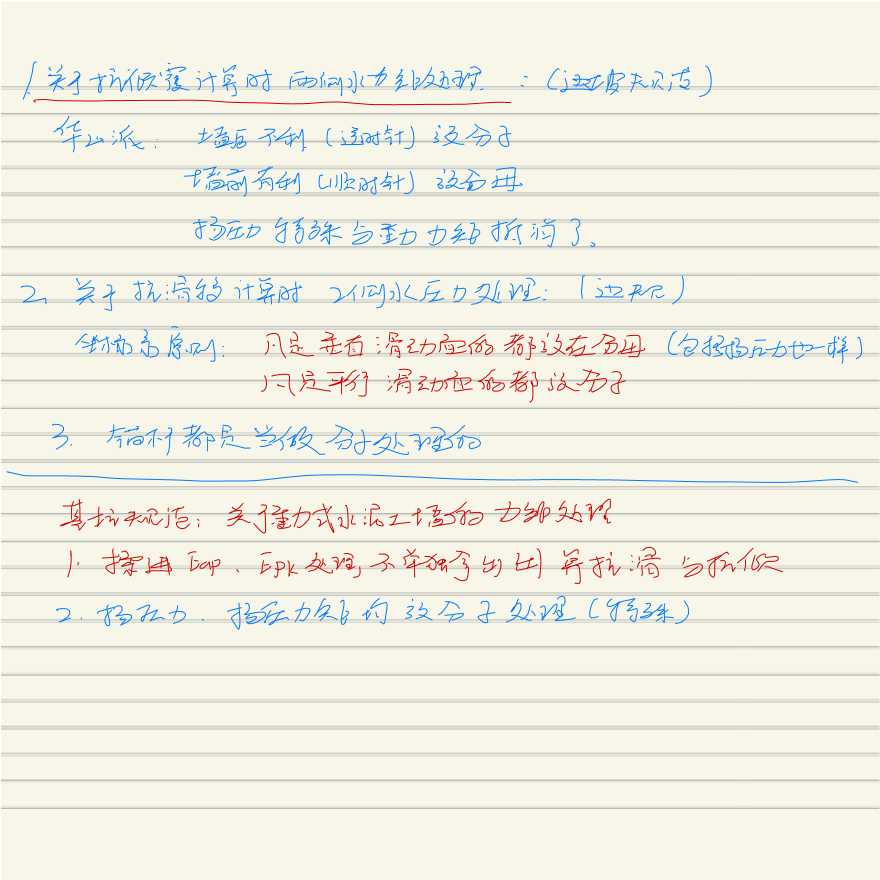 1. 关于抗倾覆计算时 两侧水力矩处理：(边坡支规范)
华山派：墙后不利(逆时针)放分子
墙前有利(顺时针)放分母
扬压力特殊与重力力矩抵消了。
2、关于抗滑移计算时 2侧水压力处理：(边规)
原则：凡是垂直滑动面的都放在分母(包括扬压力也一样)
凡是平行滑动面的都放分子
3. 锚杆都是当做分子处理的
基坑规范：关于重力式水泥土墙的力矩处理
1. 揉进Eap、Epk处理,不单独拿出 算抗滑与抗倾
2. 扬压力、扬压力矩均放分子处理(特殊)